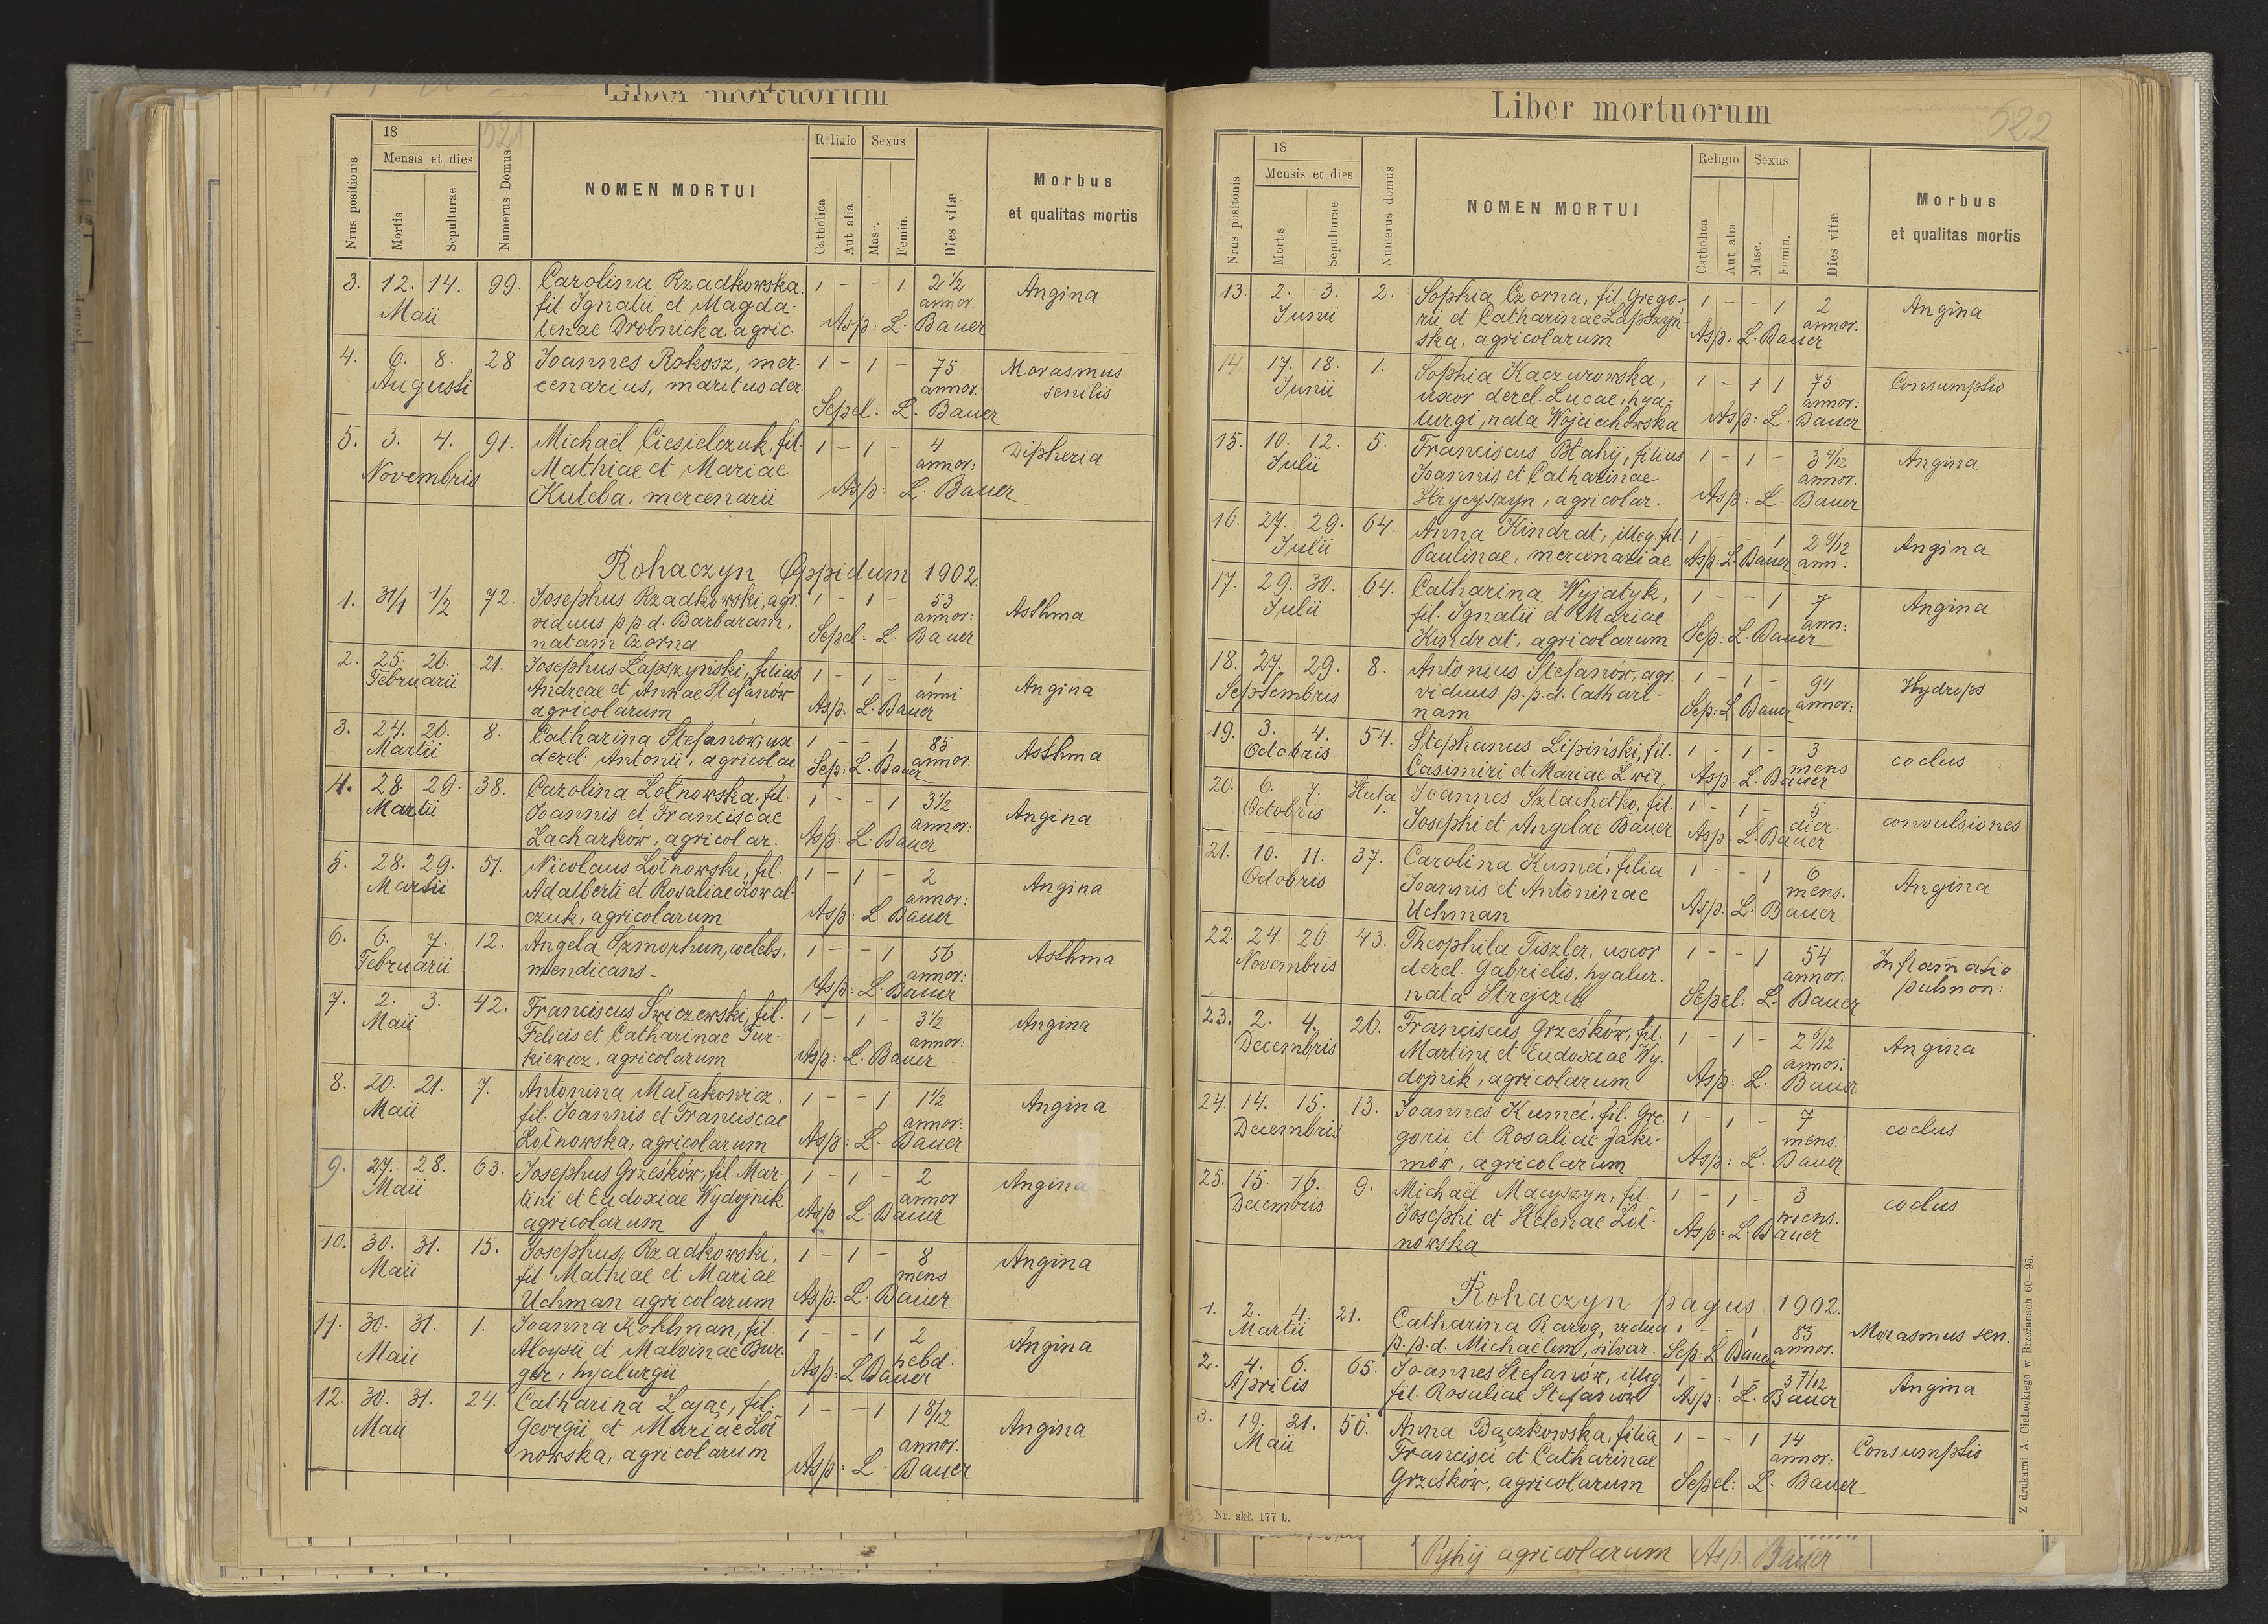 Liber mortuorum
521
Nrus positionis
18
Mensis et dies
Mortis
Sepulturae
Numerus Domus
NOMEN MORTUI
Religio
Catholica
Aut alia
Sexus
Masc.
Femin.
Dies vitæ
Morbus
et qualitas mortis
3. 12. 14. 99. Carolina Rzadkowska, 1 - - 1 2 1/2 Angina
Maii fil. Ignatii et Magda- annor.
lenae Drobnicka, agric. Asp: L. Bauer
4. 6. 8. 28. Joannes Rokosz, mer- 1 - 1 - 75 Marasmus
Augusti cenarius, maritus der. annor. senilis
Sepel: L. Bauer
5. 3. 4. 91. Michaël Ciesielczuk, fil. 1 - 1 - 4 Dipheria
Novembris Mathiae et Mariae annor:
Kuleba, mercenarii Asp: L. Bauer
Rohaczyn Oppidum 1902.
1. 31/1 1/2 72. Josephus Rzadkowski, agr. 1 - 1 - 53 Asthma
viduus p.p.d. Barbaram, annor:
natam Czorna Sepel: L. Bauer
2. 25. 26. 21. Josephus Łapszyński, filius 1 - 1 - 1 Angina
Februarii Andreae et Annae Stefanów anni
agricolarum Asp. L. Bauer
3. 24. 26. 8. Catharina Stefanów, ux. 1 - - 1 85 Asthma
Martii derel: Antonii, agricolae Sep: L. Bauer annor.
4. 28. 29. 38. Carolina Żołnowska, fil. 1 - - 1 3 1/2 Angina
Martii Joannis et Franciscae annor:
Zacharków, agricolar. Asp: L. Bauer
5. 28. 29. 51. Nicolaus Żołnowski, fil. 1 - 1 - 2 Angina
Martii Adalberti et Rosaliae Kowal- annor:
czuk, agricolarum Asp: L. Bauer
6. 6. 7. 12. Angela Szmorhun, coelebs, 1 - - 1 56 Asthma
Februarii mendicans - annor:
Asp: L. Bauer
7. 2. 3. 42. Franciscus Świczewski, fil. 1 - 1 - 3 1/2 Angina
Maii Felicis et Catharinae Tur- annor:
kiewicz, agricolarum Asp: L. Bauer
8. 20. 21. 7. Antonina Małakowicz, 1 - - 1 1 1/2 Angina
Maii fil. Joannis et Franciscae annor:
Żołnowska, agricolarum Asp: L. Bauer
9. 27. 28. 63. Josephus Grześków, fil. Mar- 1 - 1 - 2 Angina
Maii tini et Eudoxiae Wydojnik annor
agricolarum Asp: L. Bauer
10. 30. 31. 15. Josephus Rzadkowski, 1 - 1 - 8 Angina
Maii fil. Mathiae et Mariae mens
Uchman agricolarum Asp: L. Bauer
11. 30. 31. 1. Joanna Kohlman, fil. 1 - - 1 2 Angina
Maii Aloysii et Malvinae Bur- hebd.
ger, hyalurgii Asp: L. Bauer
12. 30. 31. 24. Catharina Zając, fil. 1 - - 1 1 8/12 Angina
Maii Georgii et Mariae Żoł annor.
nowska, agricolarum Asp: L. Bauer
Liber mortuorum
522
Nrus positionis
18
Mensis et dies
Mortis
Sepulturae
Numerus domus
NOMEN MORTUI
Religio
Catholica
Aut alia
Sexus
Masc.
Femin.
Dies vitæ
Morbus
et qualitas mortis
13. 2. 3. 2. Sophia Czorna, fil. Grego- 1 - - 1 2 Angina
Junii rii et Catharinae Łapszyń- annor:
ska, agricolarum Asp: L. Bauer
14. 17. 18. 1. Sophia Kaczurowska, 1 - + 1 75 Consumptio
Junii uxor derel. Lucae, hya- annor:
lurgi, nata Wojciechowska Asp: L. Bauer
15. 10. 12. 5. Franciscus Błahij, filius 1 - 1 - 3 4/12 Angina
Julii Joannis et Catharinae annor.
Hrycyszyn, agricolar. Asp: L. Bauer
16. 27. 29. 64. Anna Kindrat, illeg. fil. 1 - - 1 2 9/12 Angina
Julii Paulinae, mercenariae Asp: L. Bauer ann:
17. 29. 30. 64. Catharina Wyjatyk, 1 - - 1 7 Angina
Julii fil. Ignatii et Mariae ann:
Kindrat, agricolarum Sep: L. Bauer
18. 27. 29. 8. Antonius Stefanów, agr. 1 - 1 - 94 Hydrops
Septembris viduus p.p.d. Cathari- annor:
nam Sep: L. Bauer
19. 3. 4. 54. Stephanus Lipiński, fil. 1 - 1 - 3 coclus
Octobris Casimiri et Mariae Zwir mens
Asp: L. Bauer
20. 6. 7. Huta Joannes Szlachetko, fil. 1 - 1 - 5 convulsiones
Octobris 1. Josephi et Angelae Bauer dier.
Asp: L. Bauer
21. 10. 11. 37. Carolina Kumeć, filia 1 - - 1 6 Angina
Octobris Joannis et Antoninae mens.
Uchman Asp: L. Bauer
22. 24. 26. 43. Theophila Tiszler, uxor 1 - - 1 54 Inflam̄atio
Novembris derel. Gabrielis, hyalur. annor. pulmon:
nata Strejczek Sepel: L. Bauer
23. 2. 4. 26. Franciscus Grześków, fil. 1 - 1 - 2 6/12 Angina
Decembris Martini et Eudoxiae Wy- annor.
dojnik, agricolarum Asp: L. Bauer
24. 14. 15. 13. Joannes Kumeć, fil. Gre- 1 - 1 - 7 coclus
Decembris gorii et Rosaliae Jaki- mens.
mów, agricolarum Asp: L. Bauer
25. 15. 16. 9. Michaël Macyszyn, fil. 1 - 1 - 3 coclus
Decembris Josephi et Helenae Żoł- mens.
nowska Asp: L. Bauer
Rohaczyn pagus 1902.
1. 2. 4. 21. Catharina Rarog, vidua 1 - - 1 85 Marasmus sen.
Martii p.p.d. Michaëlem, silvar. Sep: L. Bauer annor.
2. 4. 6. 65. Joannes Stefanów, illeg. 1 - 1 - 3 7/12 Angina
Aprilis fil. Rosaliae Stefanów Asp: L. Bauer
3. 19. 21. 56. Anna Bączkowska, filia 1 - - 1 14 Consumptio
Maii Francisci et Catharinae annor:
Grześków, agricolarum Sepel: L. Bauer
Nr. skł. 177 b.
Z drukarni A. Cichockiego w Brzeżanach 60—95.
Pyhij agricolarum Asp. Bauer